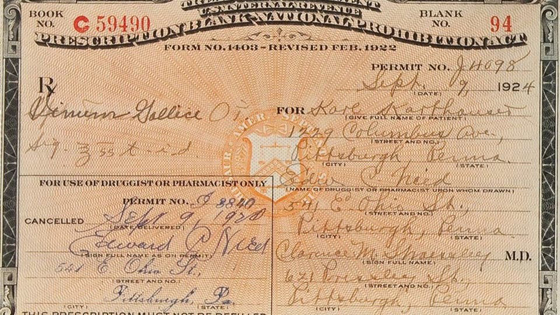 TREASURY DEPARTMENT
U.S. INTERNAL REVENUE
BOOK NO. C 59490
BLANK NO. 94
PRESCRIPTION BLANK-NATIONAL PROHIBITION ACT
FORM NO. 1403 - REVISED FEB. 1922
PERMIT NO. J4098
Sept 9, 1924
(DATE)
Rx
Gallice
FOR Karl Karthauser
(GIVE FULL NAME OF PATIENT)
Sig. ℥ss t.i.d.
1729 Columbus Ave,
(STREET AND NO.)
Pittsburgh, Penna.
(CITY) (STATE)
FOR USE OF DRUGGIST OR PHARMACIST ONLY
PERMIT NO. P 8840
CANCELLED Sept 9, 1924
(DATE DELIVERED)
Edward C Nied
(SIGN FULL NAME AS ON PERMIT)
541 E. Ohio St,
(STREET AND NO.)
Pittsburgh, Pa.
(CITY) (STATE)
THIS PRESCRIPTION MAY NOT BE REFILLED
C Neid
(NAME OF DRUGGIST OR PHARMACIST UPON WHOM DRAWN)
541 E. Ohio St,
(STREET AND NO.)
Pittsburgh, Penna
(CITY) (STATE)
Clarence M. M.D.
(SIGN FULL NAME)
St,
(STREET AND NO.)
Pittsburgh, Penna
(CITY) (STATE)